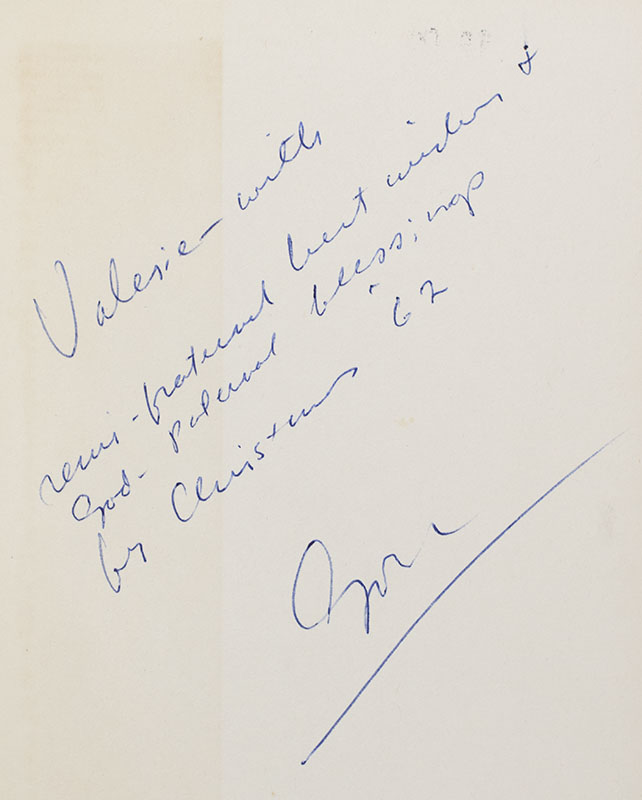 Valerie – with
semi-fraternal best wishes &
God-paternal blessings
by Christmas '62
Gore